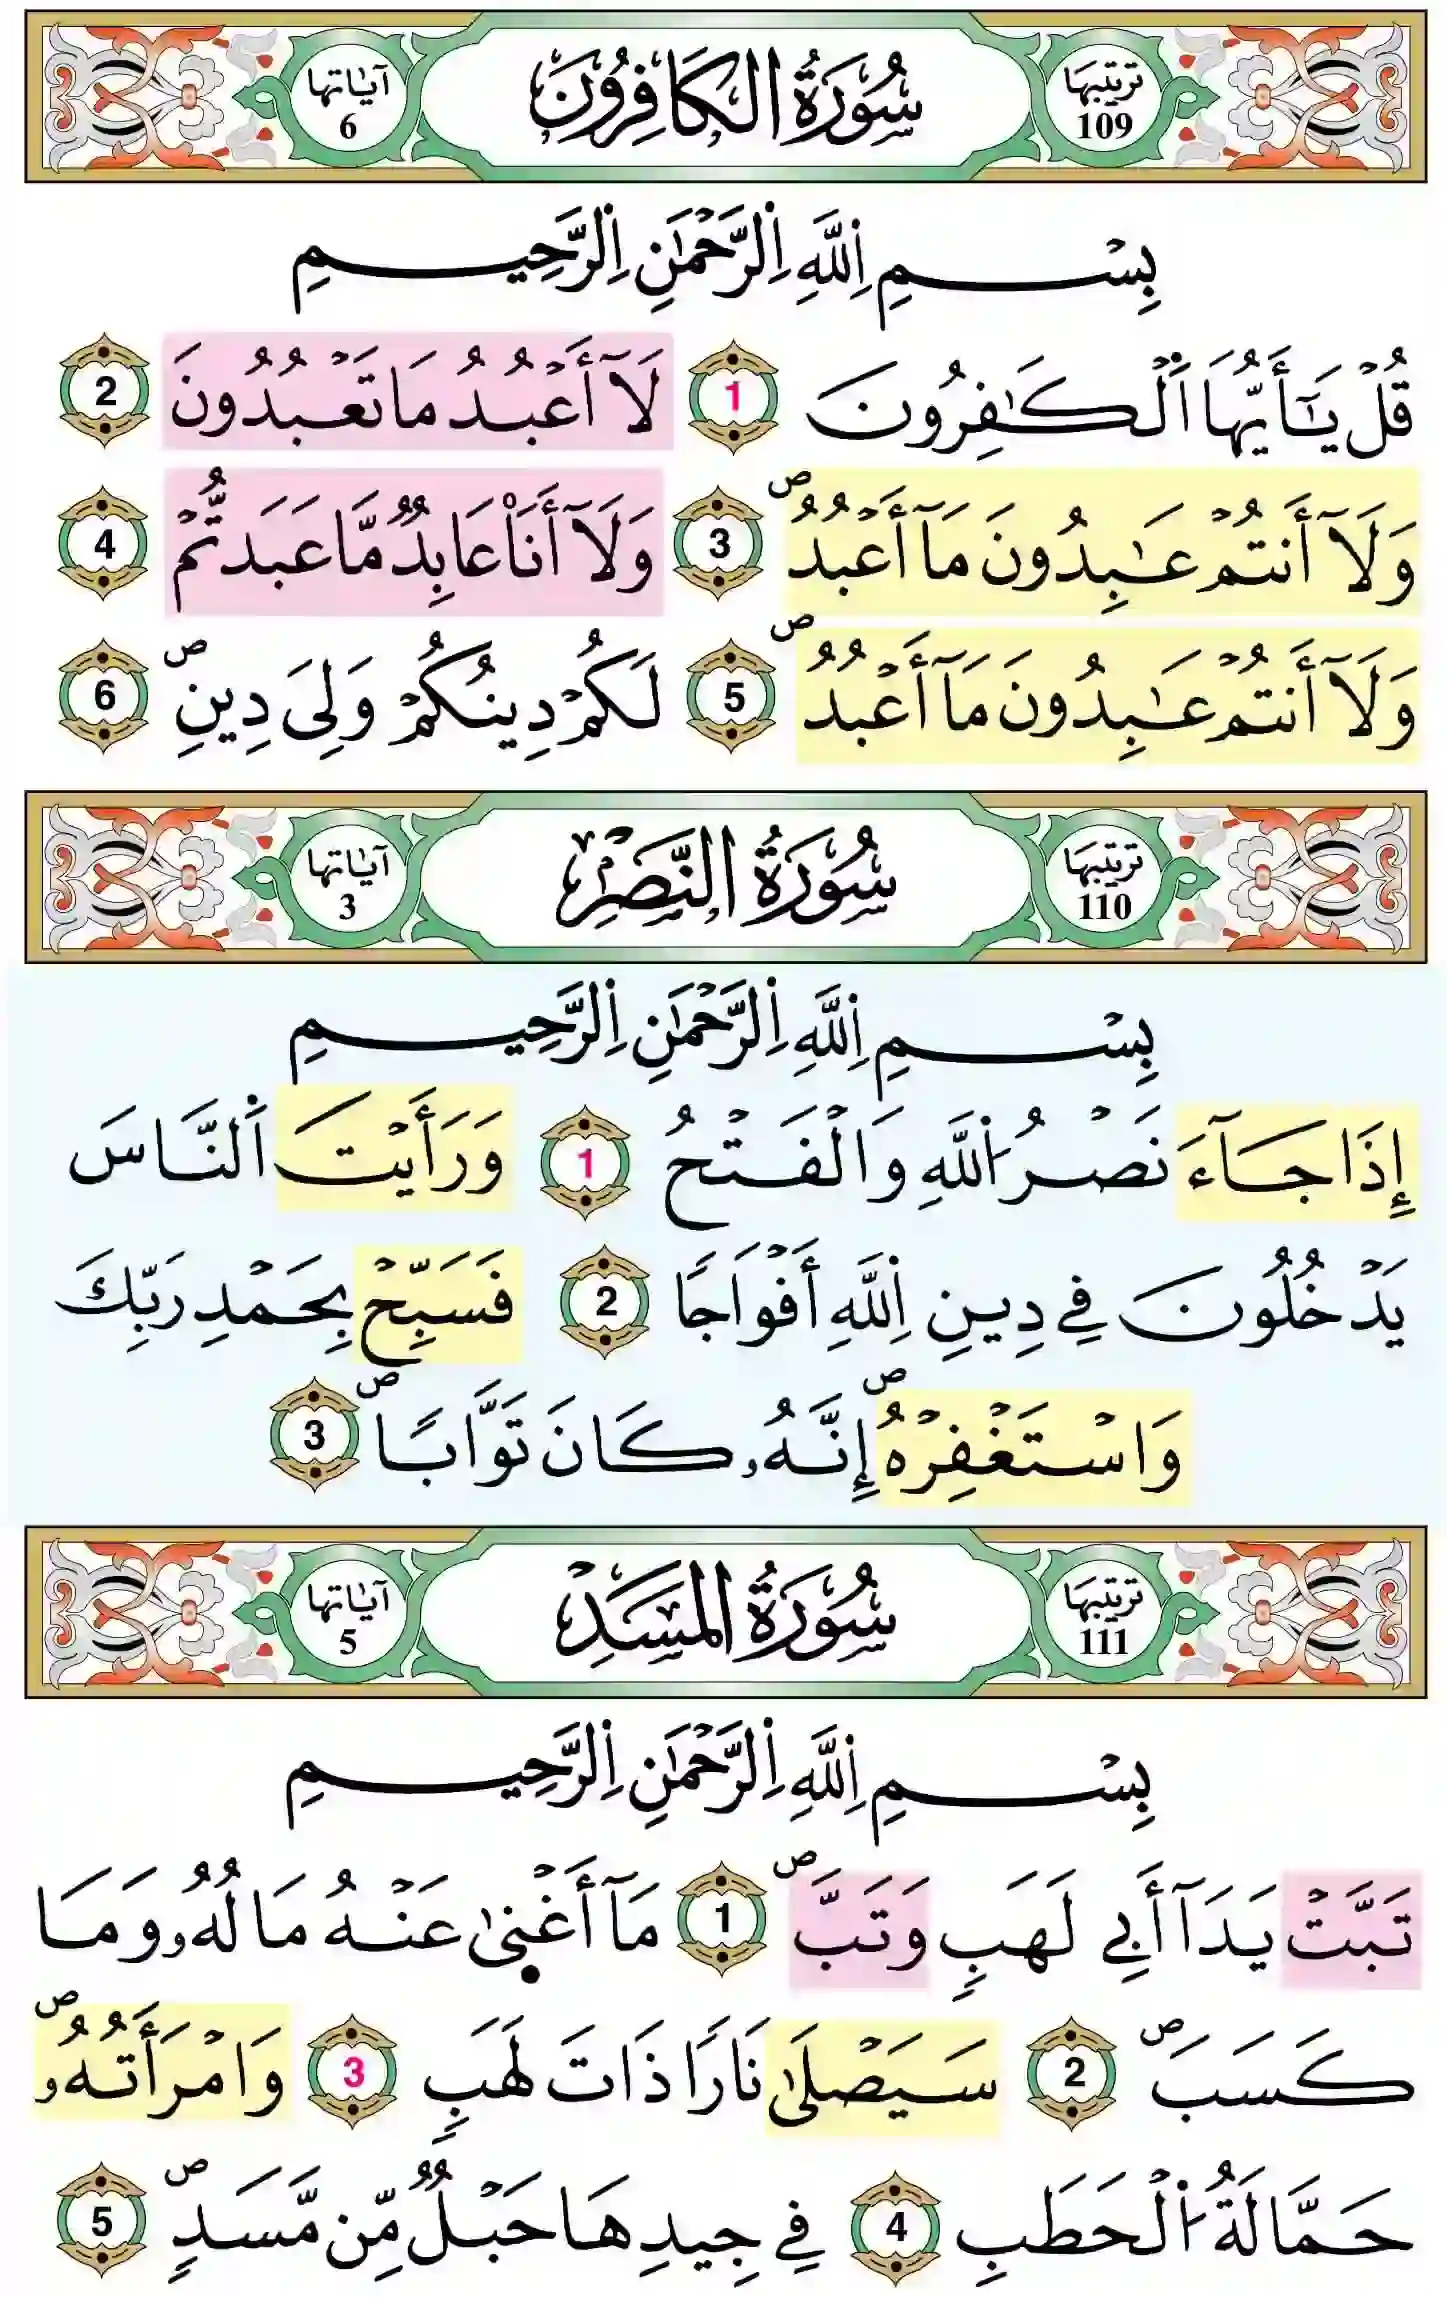 ترتيبها 109 سُورَةُ الكَافِرُون آيَاتها 6
بِسْمِ اِ۬للَّهِ اِ۬لرَّحْمَٰنِ اِ۬لرَّحِيمِ
قُلْ يَٰٓأَيُّهَا اَ۬لْكَٰفِرُونَ 1 لَآ أَعْبُدُ مَا تَعْبُدُونَ 2
وَلَآ أَنتُمْ عَٰبِدُونَ مَآ أَعْبُدُۖ 3 وَلَآ أَنَا۠ عَابِدٞ مَّا عَبَدتُّمْ 4
وَلَآ أَنتُمْ عَٰبِدُونَ مَآ أَعْبُدُۖ 5 لَكُمْ دِينُكُمْ وَلِىَ دِينِۖ 6
ترتيبها 110 سُورَةُ النَّصْرِ آيَاتها 3
بِسْمِ اِ۬للَّهِ اِ۬لرَّحْمَٰنِ اِ۬لرَّحِيمِ
إِذَا جَآءَ نَصْرُ اُ۬للَّهِ وَالْفَتْحُ 1 وَرَأَيْتَ اَ۬لنَّاسَ
يَدْخُلُونَ فِي دِينِ اِ۬للَّهِ أَفْوَاجٗا 2 فَسَبِّحْ بِحَمْدِ رَبِّكَ
وَاسْتَغْفِرْهُۖ إِنَّهُۥ كَانَ تَوَّابَۢاۖ 3
ترتيبها 111 سُورَةُ المَسَدِ آيَاتها 5
بِسْمِ اِ۬للَّهِ اِ۬لرَّحْمَٰنِ اِ۬لرَّحِيمِ
تَبَّتْ يَدَآ أَبِي لَهَبٖ وَتَبَّۖ 1 مَآ أَغْن۪ىٰ عَنْهُ مَالُهُۥ وَمَا
كَسَبَۖ 2 سَيَصْلَىٰ نَارٗا ذَاتَ لَهَبٖ 3 وَامْرَأَتُهُۥۖ
حَمَّالَةُ اُ۬لْحَطَبِ 4 فِي جِيدِهَا حَبْلٞ مِّن مَّسَدٖۖ 5